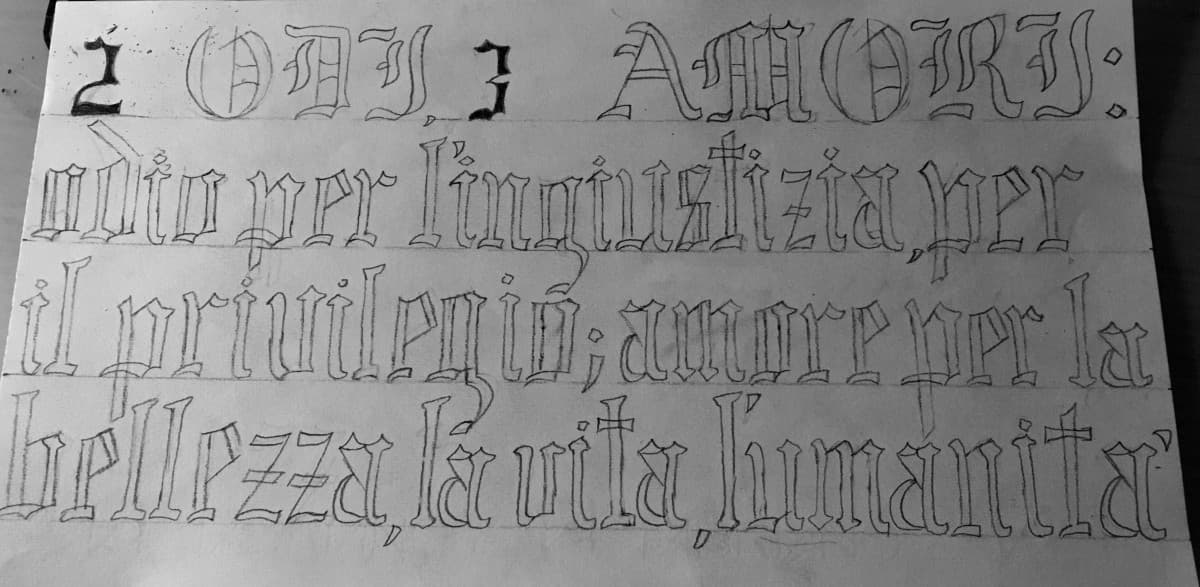 2 ODI, 3 AMORI:
odio per l'ingiustizia, per
il privilegio; amore per la
bellezza, la vita, l'umanita'